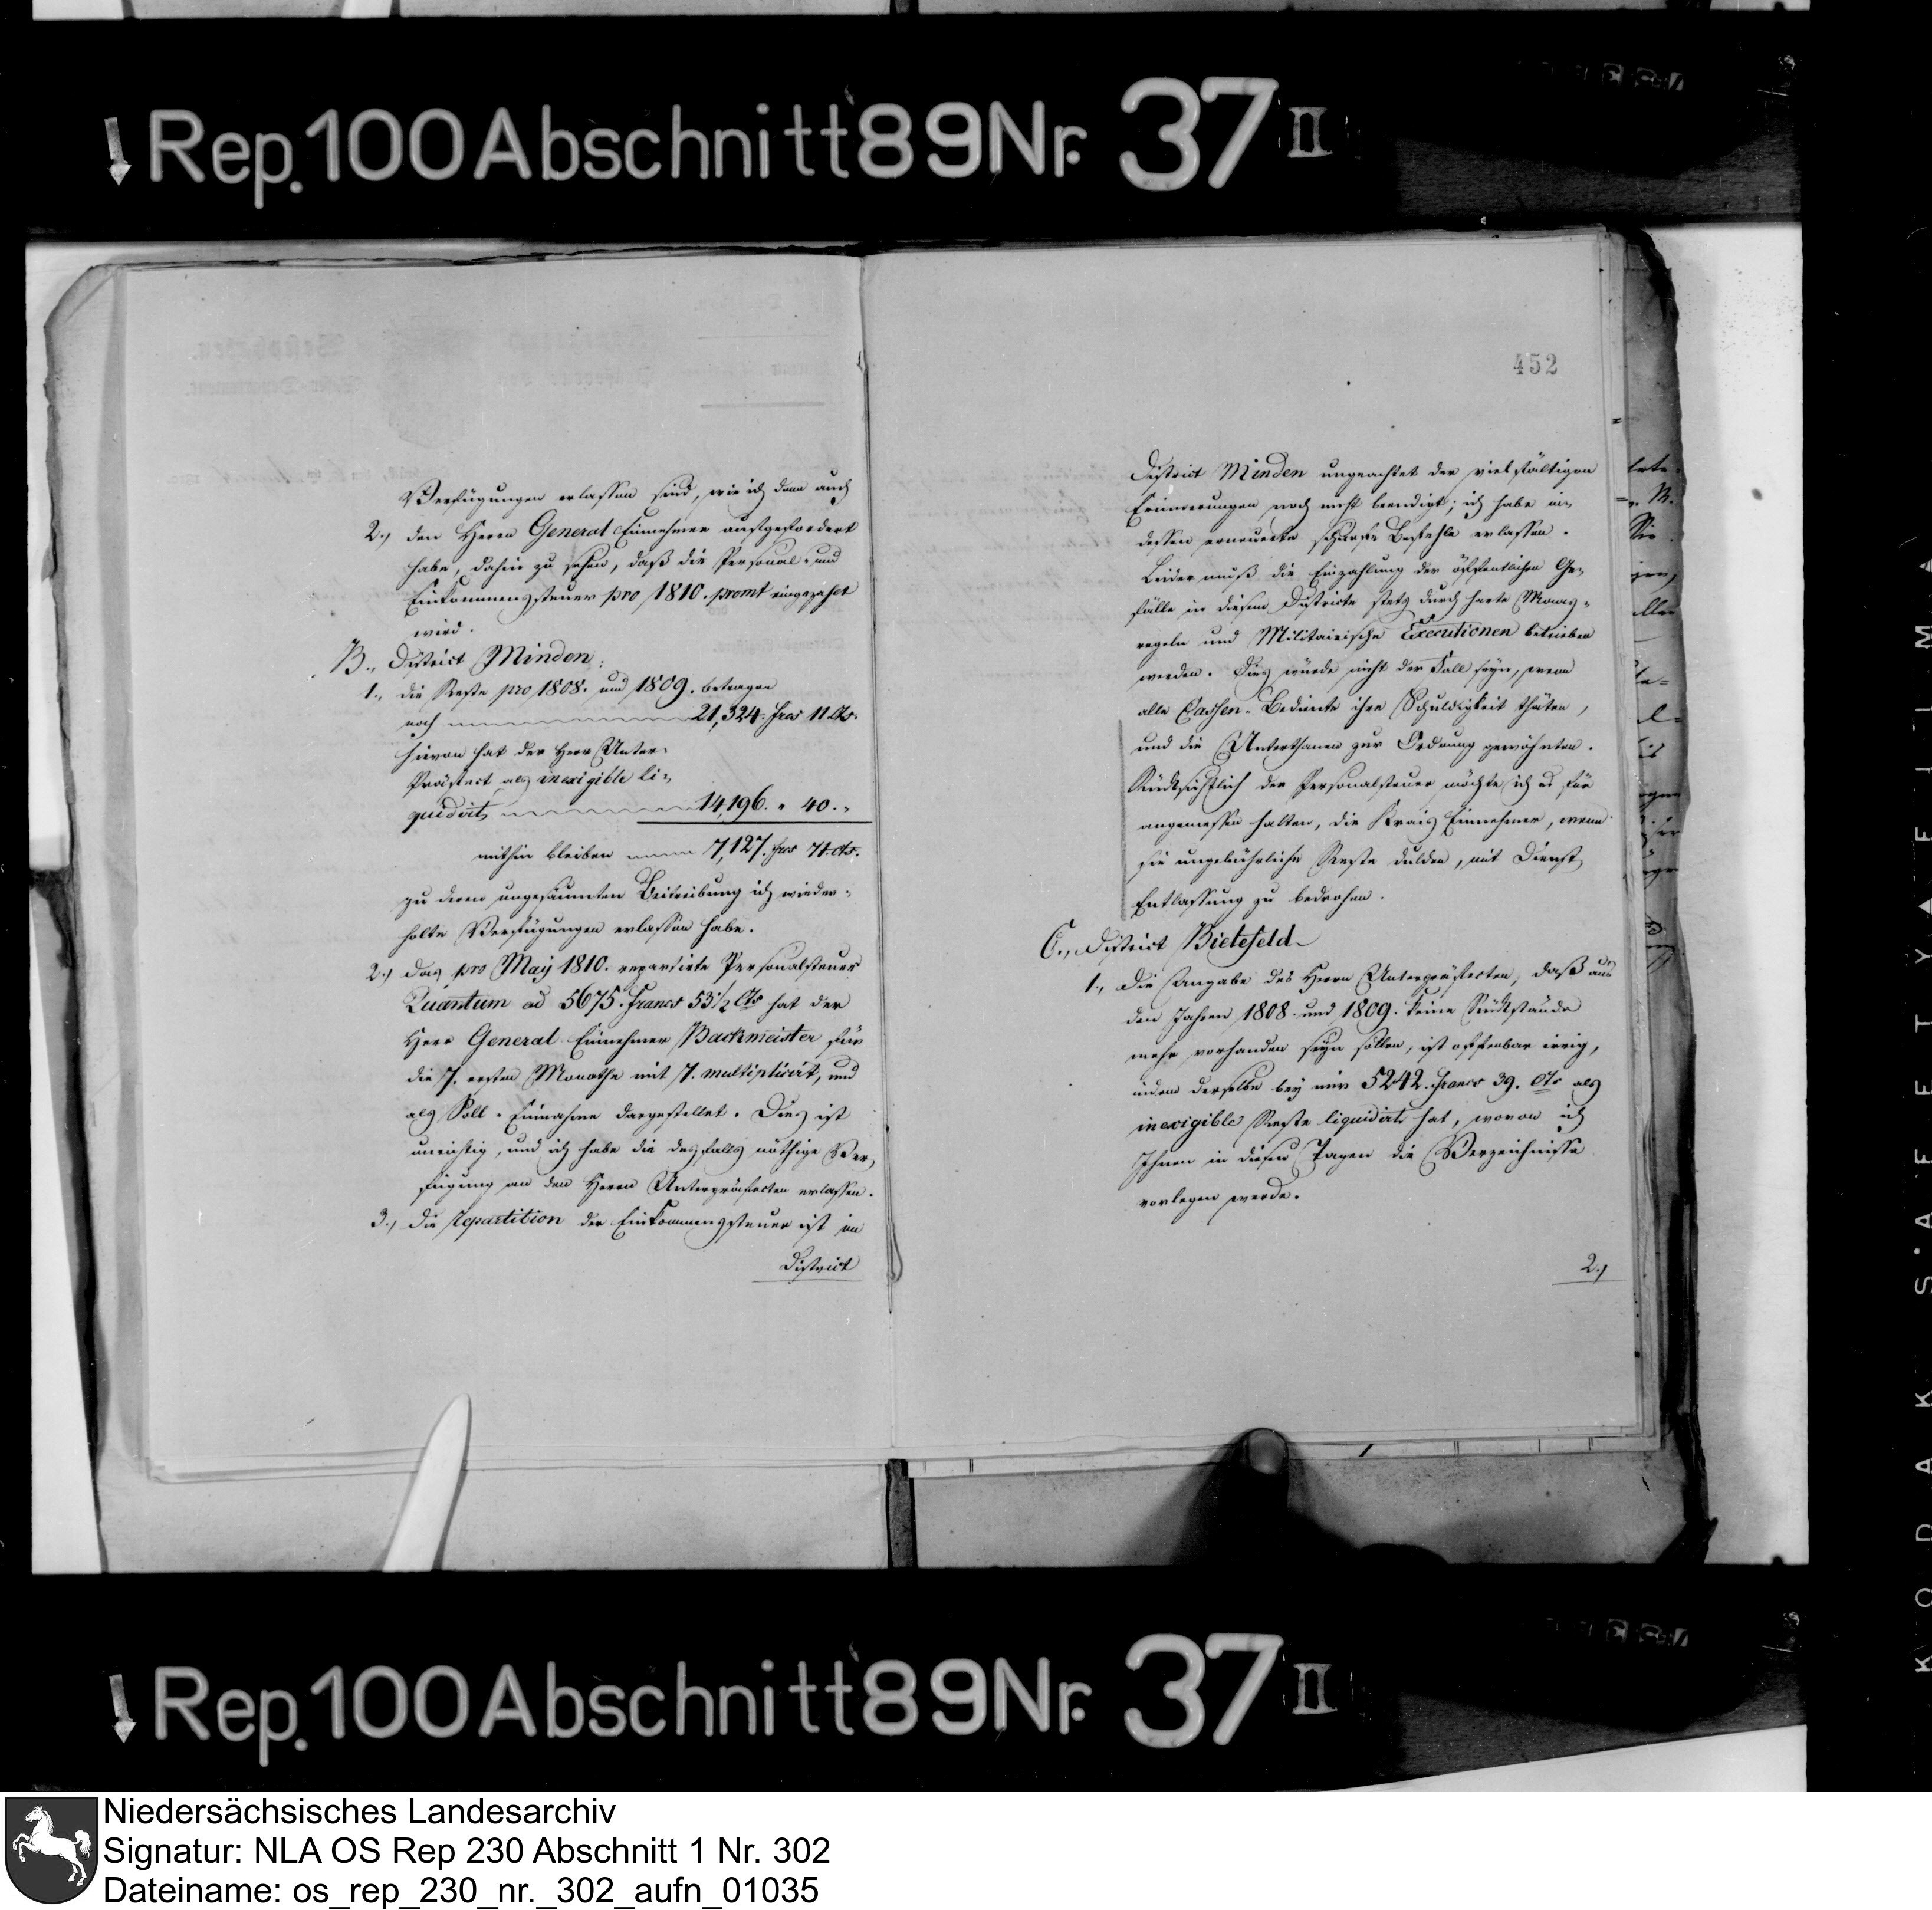 Rep. 100 Abschnitt 89 Nr. 37 II
452
Verfügungen erlassen sind, wie ich denn auch
2., den Herrn General Einnehmer aufgefordert
habe, dahin zu sehen, daß die Personal- und
Einkommenssteuer pro 1810. promt eingezahlt
wird.
B., District Minden:
1., die Reste pro 1808. und 1809. betragen
noch 21,324. frcs 11. Cts.
hievon hat der Herr Unter-
Präfect als inexigible li-
quidirt 14,196. " 40. "
mithin bleiben 7,127. frcs 71. cts.
zu deren ungesäumten Beitreibung ich wieder-
holte Verfügungen erlassen habe.
2., Das pro May 1810. repartirte Personalsteuer
Quantum ad 5675. Francs 53 1/2 Cts hat der
Herr General Einnehmer Backmeister für
die 7. ersten Monathe mit 7. multiplicirt, und
als Soll-Einnahme dargestellet. Dies ist
unrichtig, und ich habe die desfalls nöthige Ver-
fügung an den Herrn Unterpräfecten erlassen.
3., Die repartition der Einkommenssteuer ist im
District
District Minden ungeachtet der vielfältigen
Erinnerungen noch nicht beendigt; ich habe in-
dessen erneuerte scharfe Befehle erlassen.
Leider muß die Einzahlung der öffentlichen Ge-
fälle in diesem Districte stets durch harte Maas-
regeln und Militairische Executionen betrieben
werden. Dies würde nicht der Fall seyn, wenn
alle Cassen-Bediente ihre Schuldigkeit thäten,
und die Unterthanen zur Ordnung gewöhnten.
Rücksichtlich der Personalsteuer möchte ich es für
angemessen halten, die Krais Einnehmer, wenn
sie ungebührliche Reste dulden, mit Dienst
Entlassung zu bedrohen.
C., District Bielefeld
1., Die Angabe des Herrn Unterpräfecten, daß aus
den Jahren 1808. und 1809. keine Rückstände
mehr vorhanden seyn sollen, ist offenbar irrig,
indem derselbe bey mir 5242. francs 39. Cts als
inexigible Reste liquidirt hat, wovon ich
Ihnen in diesen Tagen die Verzeichnisse
vorlegen werde.
2.,
Rep. 100 Abschnitt 89 Nr. 37 II
KODAK SAFETY FILM
Niedersächsisches Landesarchiv
Signatur: NLA OS Rep 230 Abschnitt 1 Nr. 302
Dateiname: os_rep_230_nr._302_aufn_01035